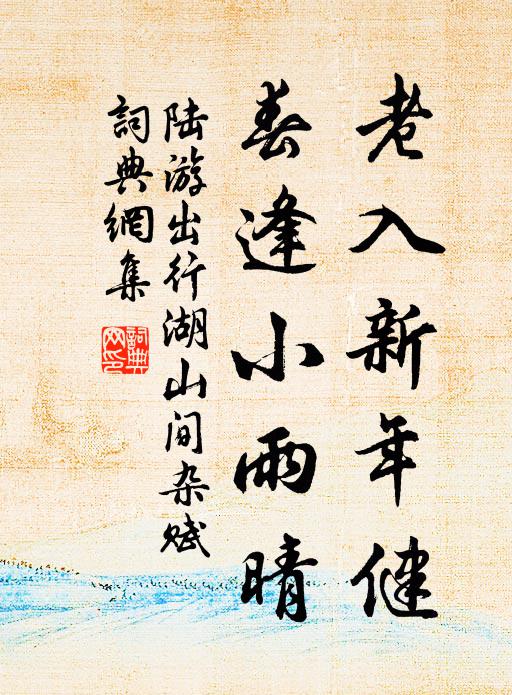 老入新年健
春逢小雨晴
陆游出行湖山间杂赋
詞典網集
詞典网印